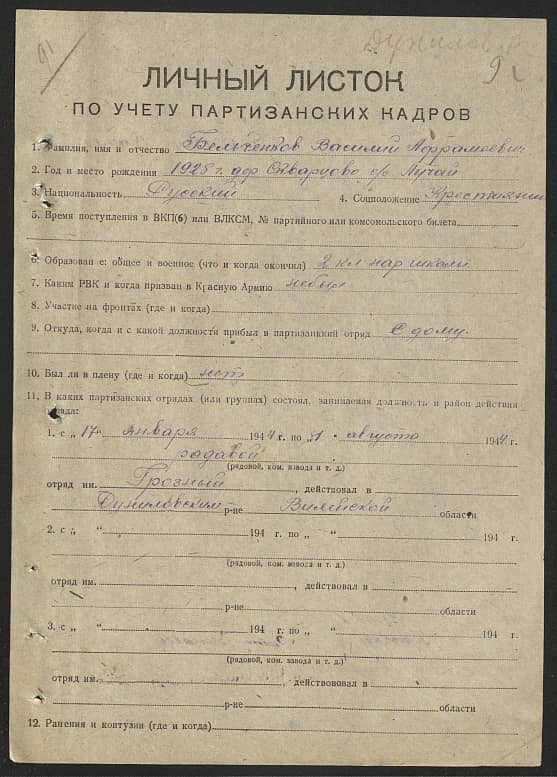 91
9
ЛИЧНЫЙ ЛИСТОК
ПО УЧЕТУ ПАРТИЗАНСКИХ КАДРОВ
1. Фамилия, имя и отчество Бельченков Василий
2. Год и место рождения 1925 г. дер с/с Лучай
3. Национальность Русский 4. Соцположение Крестянин
5. Время поступления в ВКП(б) или ВЛКСМ, № партийного или комсомольского билета
6. Образован е: общее и военное (что и когда окончил) 2 кл нар школи
7. Каким РВК и когда призван в Красную Армию небыл
8. Участие на фронтах (где и когда)
9. Откуда, когда и с какой должности прибыл в партизанский отряд С дому
10. Был ли в плену (где и когда) нет
11. В каких партизанских отрядах (или группах) состоял, занимаемая должность и район действия
отряда:
1. с „17“ января 1944 г. по „1“ августа 1944 г.
радавой
(рядовой, ком. взвода и т. д.)
отряд им. Грозный, действовал в
Дуниловским р-не Вилейской области
2. с „ “ 194 г. по „ “ 194 г.
(рядовой, ком. взвода и т. д.)
отряд им. , действовал в
р-не области
3. с „ “ 194 г. по „ “ 194 г.
(рядовой, ком. взвода и т. д.)
отряд им. , действововал в
р-не области
12. Ранения и контузии (где и когда)